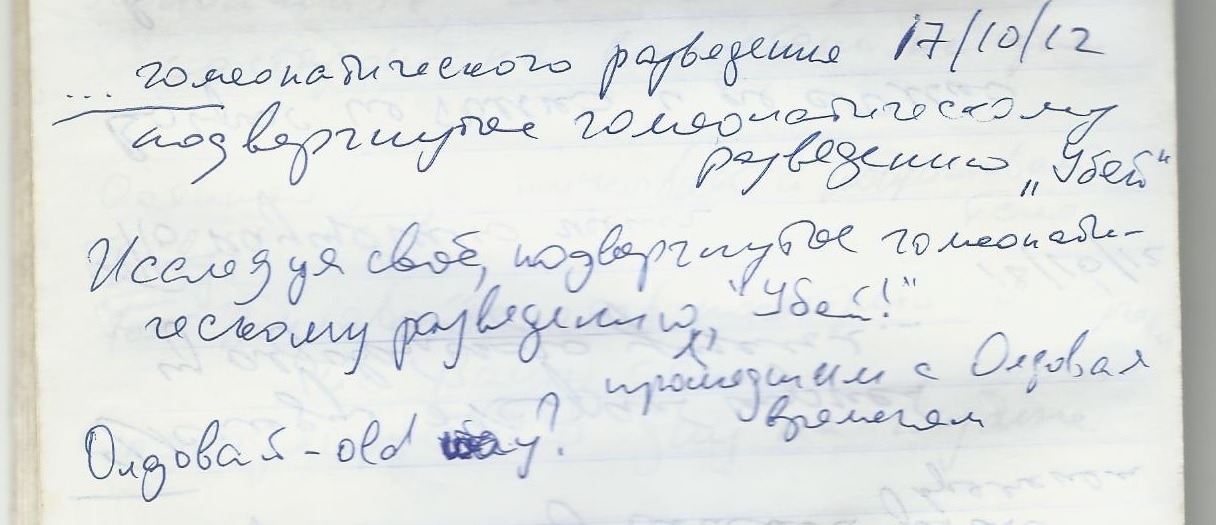 ... гомеопатического разведения 17/10/12
подвергнутое гомеопатическому
разведению „Убей“
Исследуя своё, подвергнутое гомеопати-
ческому разведению, "Убей!"
прошедшим с Олдовая
временем
Олдовай - old way?